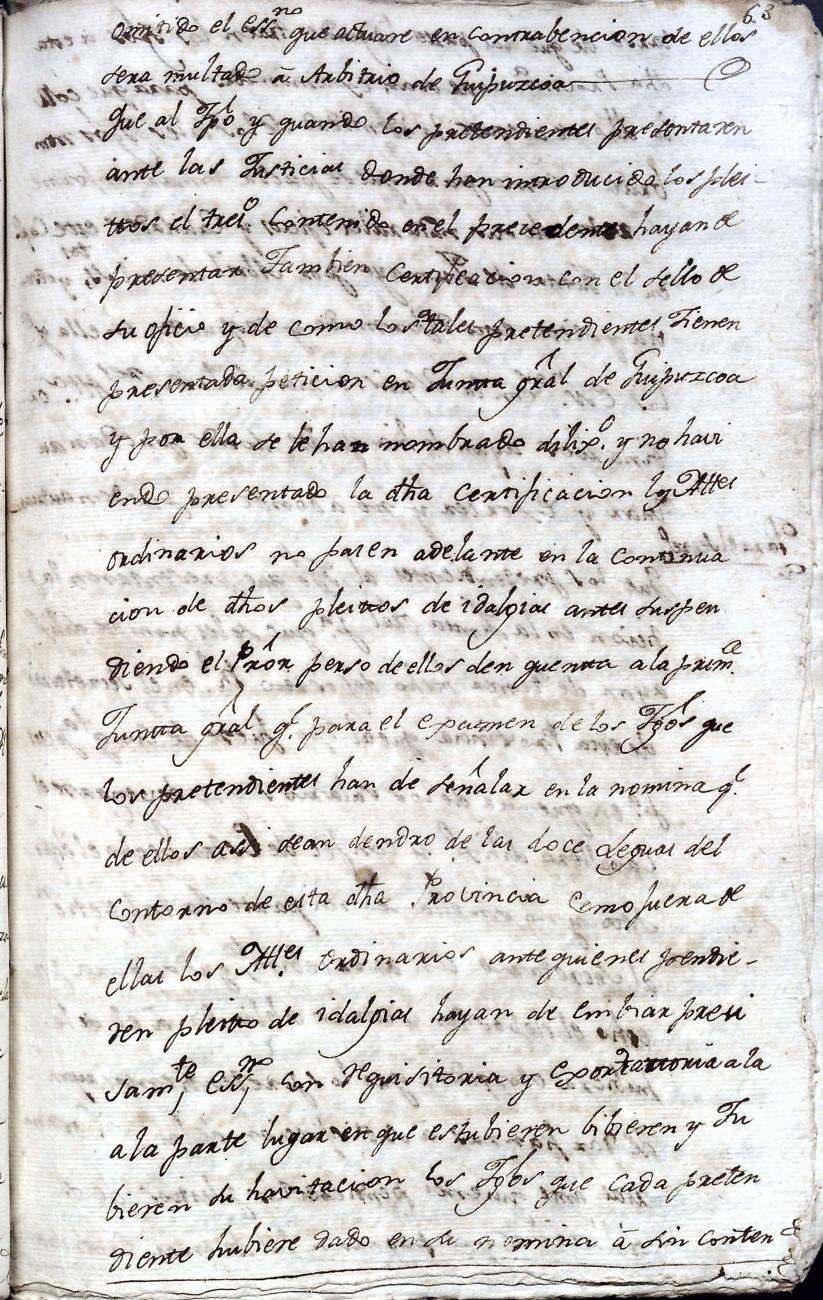 63
omitido el essno que actuare en contrabencion de ellos
sera multado â Arbitrio de Guipuzcoa
Que al tpo y quando los pretendientes presentaren
ante las Justicias donde han introducido los plei-
ttos el treso contenido en el precedente hayan de
presentar Tambien Certificacion con el sello de
su oficio y de como los tales pretendientes Tienen
presentada peticion en Juntta gral de Guipuzcoa
y por ella se le han nombrado dilixo. y no havi
endo presentado la dha Certificacion los Alldes
ordinarios no pasen adelante en la continua
cion de dhos pleittos de idalgias antes suspen
diendo el progreso de ellos den quentta a la prima.
Juntta gral q. para el examen de los Tgos que
los pretendientes han de señalar en la nomina q.
de ellos assi sean dendro de las doce Leguas del
Contorno de esta dha Provincia como fuera de
ellas los Alldes Ordinarios ante quienes pendie-
ren pleitto de idalgias hayan de embiar preci
samte essno con requisitoria y exortattoria a la
a la parte lugar en que estubieren bibieren y Tu
bieren su havitacion los Tgos que cada preten
diente hubiere dado en su nomina â sin conten